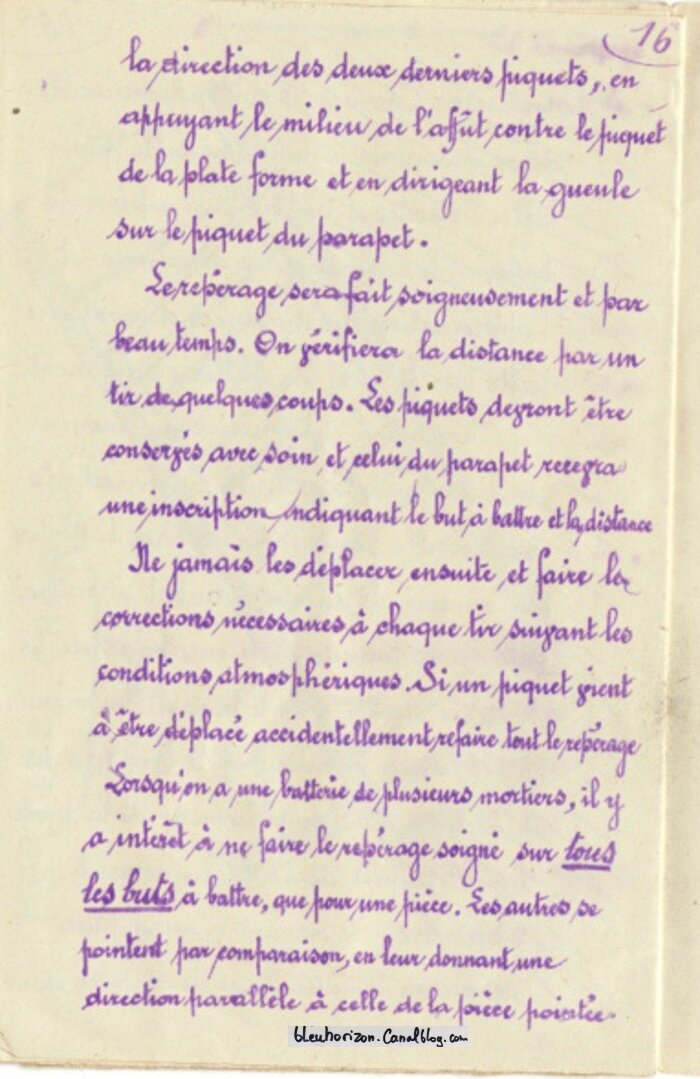 16
la direction des deux derniers piquets, en
appuyant le milieu de l'affût contre le piquet
de la plate forme et en dirigeant la gueule
sur le piquet du parapet.
Le repérage sera fait soigneusement et par
beau temps. On vérifiera la distance par un
tir de quelques coups. Les piquets devront être
conservés avec soin et celui du parapet recevra
une inscription indiquant le but à battre et la distance
Ne jamais les déplacer ensuite et faire les
corrections nécessaires à chaque tir suivant les
conditions atmosphériques. Si un piquet vient
à être déplacé accidentellement refaire tout le repérage
Lorsqu'on a une batterie de plusieurs mortiers, il y
a intérêt à ne faire le repérage soigné sur tous
les buts à battre, que pour une pièce. Les autres se
pointent par comparaison, en leur donnant une
direction parallèle à celle de la pièce pointée.
bleuhorizon.Canalblog.com